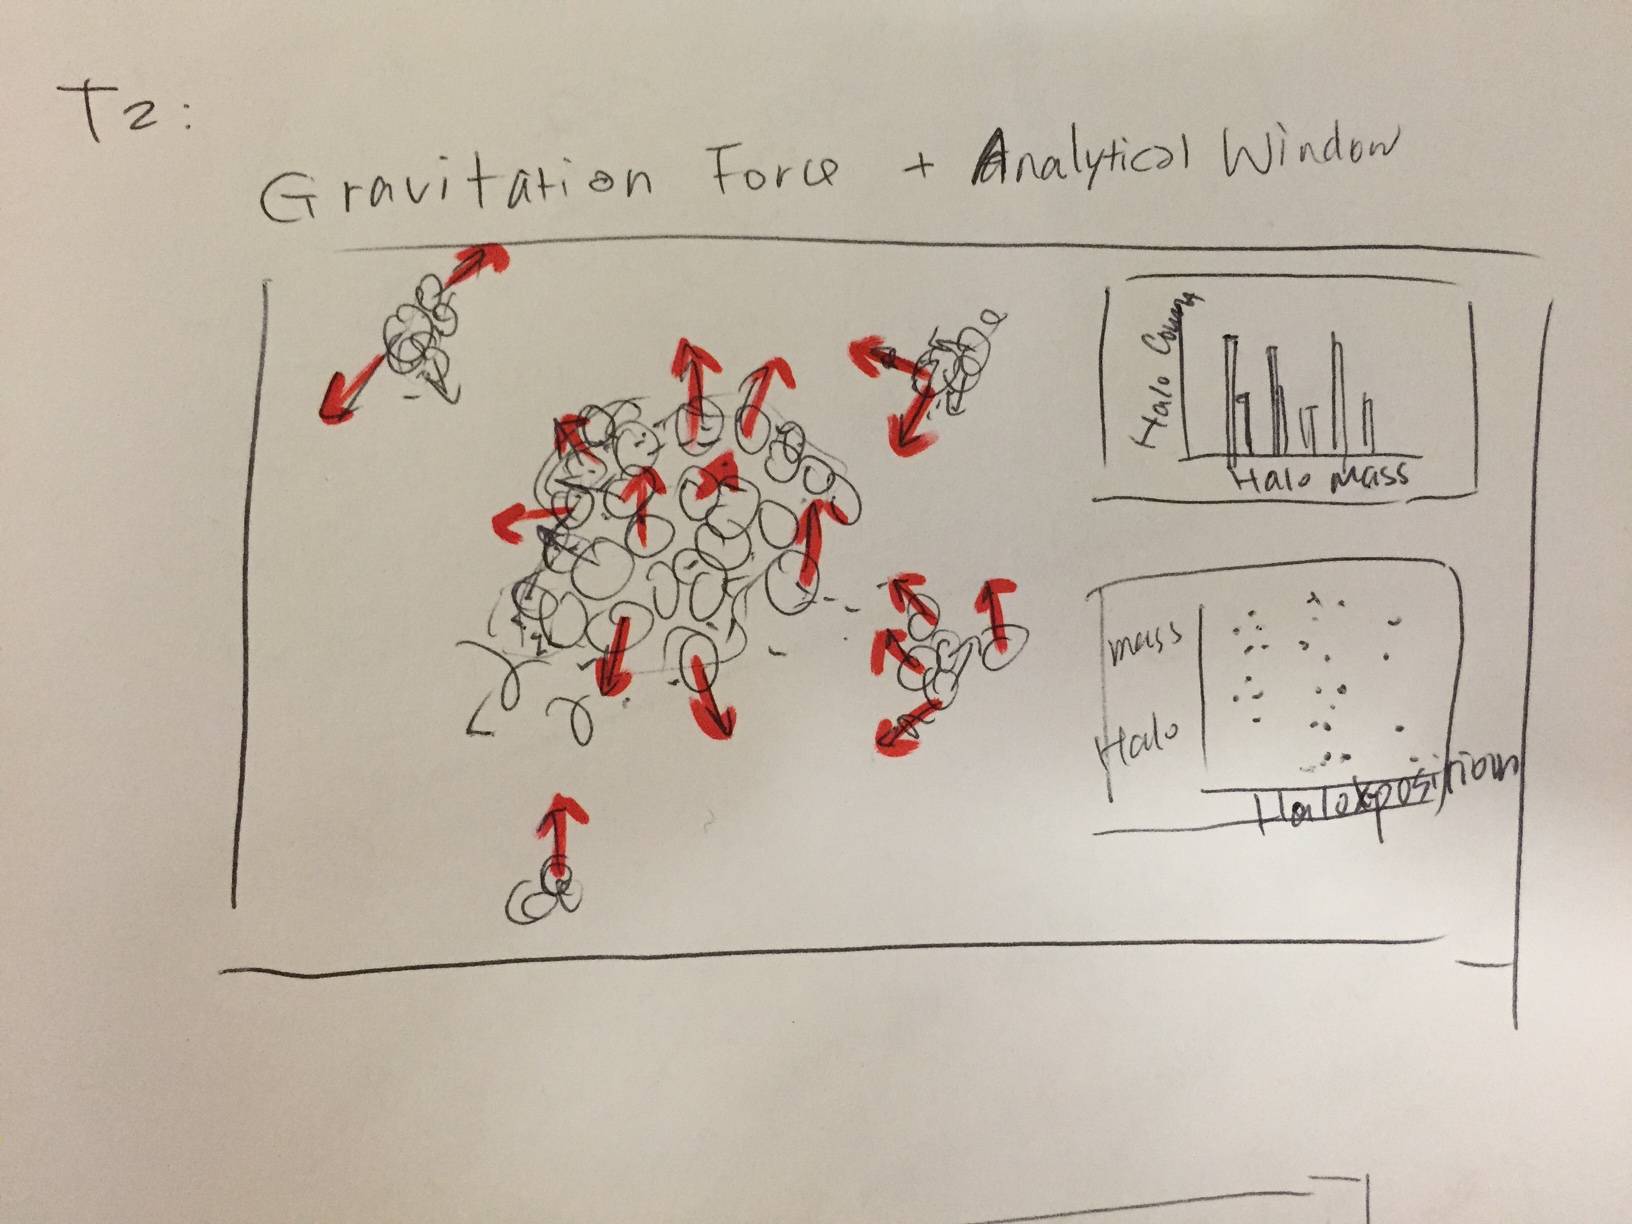 T2:
Gravitation Force + Analytical Window
Halo Count
Halo mass
Halo
mass
Halo position